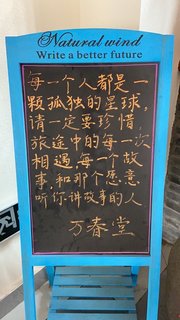 Natural wind
Write a better future
每一个人都是一
颗孤独的星球,
请一定要珍惜
旅途中的每一次
相遇,每一个故
事,和那个愿意
听你讲故事的人
万春堂